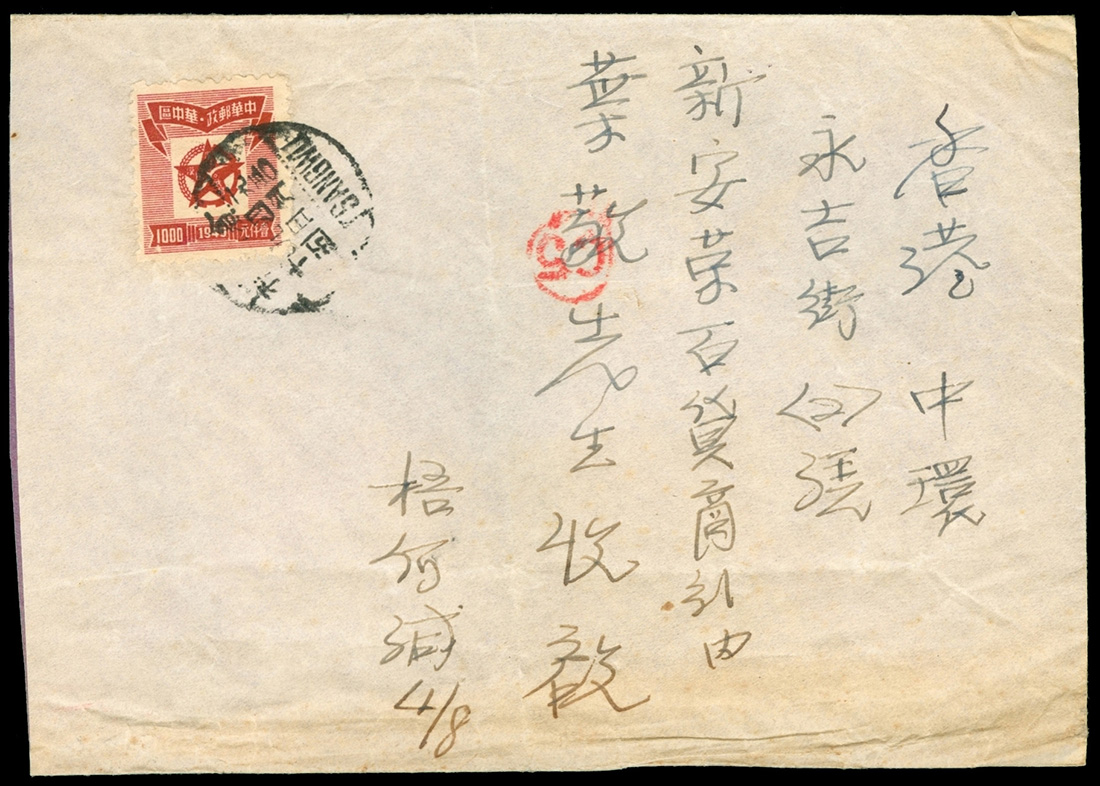 香港 中環
永吉街 〈四〉號
新安榮百貨商行內
葉 先生 收啟
梧何緘 4/8
區中華·政郵華中
1000 1949 元仟壹